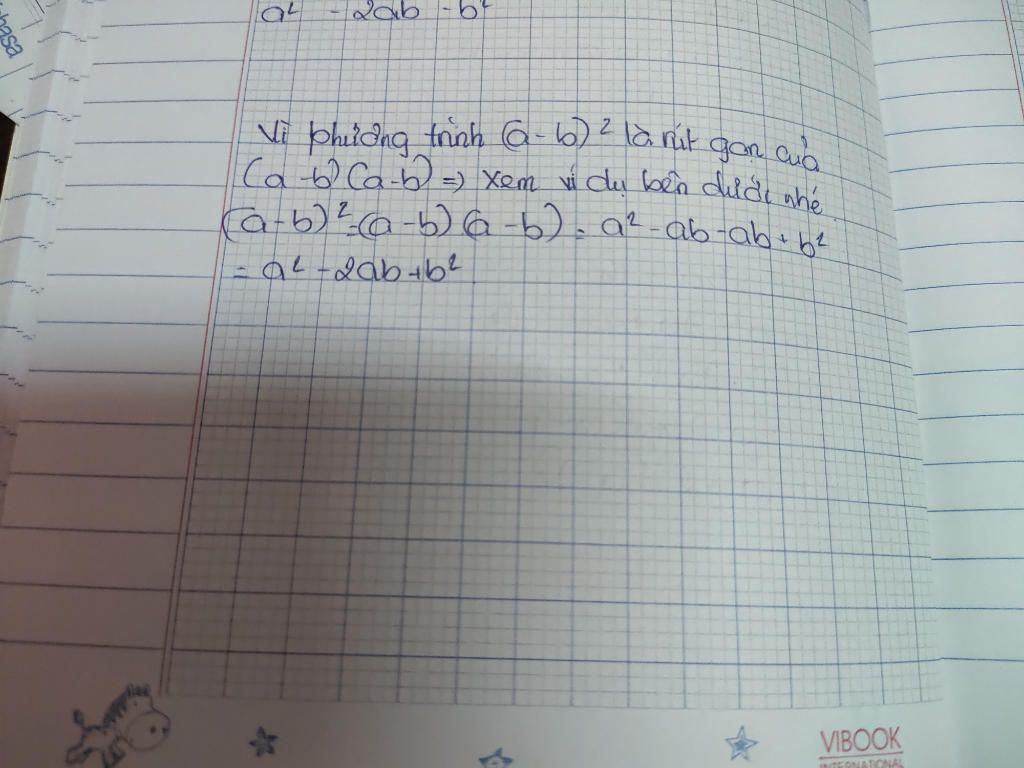 hasa
a² - 2ab - b²
Vì phương trình (a-b)² là rút gọn của
(a-b)(a-b) => xem ví dụ bên dưới nhé
(a-b)² = (a-b)(a-b) = a² - ab - ab + b²
= a² - 2ab + b²
VIBOOK
INTERNATIONAL